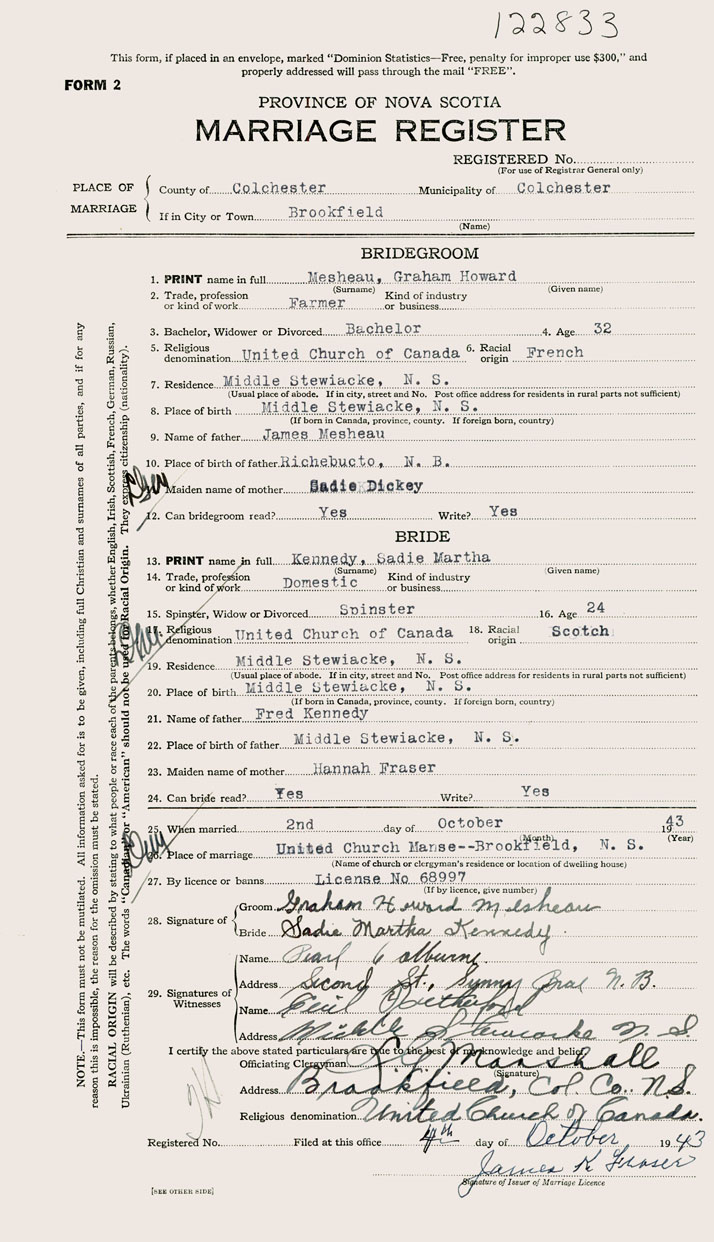 122833
This form, if placed in an envelope, marked "Dominion Statistics—Free, penalty for improper use $300," and
properly addressed will pass through the mail "FREE".
FORM 2
PROVINCE OF NOVA SCOTIA
MARRIAGE REGISTER
REGISTERED No.
(For use of Registrar General only)
PLACE OF MARRIAGE
County of Colchester Municipality of Colchester
If in City or Town Brookfield
(Name)
BRIDEGROOM
1. PRINT name in full Mesheau, Graham Howard
(Surname) (Given name)
2. Trade, profession or kind of work Farmer Kind of industry or business
3. Bachelor, Widower or Divorced Bachelor 4. Age 32
5. Religious denomination United Church of Canada 6. Racial origin French
7. Residence Middle Stewiacke, N. S.
(Usual place of abode. If in city, street and No. Post office address for residents in rural parts not sufficient)
8. Place of birth Middle Stewiacke, N. S.
(If born in Canada, province, county. If foreign born, country)
9. Name of father James Mesheau
10. Place of birth of father Richebucto, N. B.
Maiden name of mother Sadie Dickey
12. Can bridegroom read? Yes Write? Yes
BRIDE
13. PRINT name in full Kennedy, Sadie Martha
(Surname) (Given name)
14. Trade, profession or kind of work Domestic Kind of industry or business
15. Spinster, Widow or Divorced Spinster 16. Age 24
17. Religious denomination United Church of Canada 18. Racial origin Scotch
19. Residence Middle Stewiacke, N. S.
(Usual place of abode. If in city, street and No. Post office address for residents in rural parts not sufficient)
20. Place of birth Middle Stewiacke, N. S.
(If born in Canada, province, county. If foreign born, country)
21. Name of father Fred Kennedy
22. Place of birth of father Middle Stewiacke, N. S.
23. Maiden name of mother Hannah Fraser
24. Can bride read? Yes Write? Yes
25. When married 2nd day of October 1943
(Month) (Year)
26. Place of marriage United Church Manse--Brookfield, N. S.
(Name of church or clergyman's residence or location of dwelling house)
27. By licence or banns License No 68997
(If by licence, give number)
28. Signature of
Groom Graham Howard Mesheau
Bride Sadie Martha Kennedy
29. Signatures of Witnesses
Name Pearl Colburne
Address Second St., Sunny Brae N. B.
Name Cecil
Address Middle Stewiacke N. S
I certify the above stated particulars are true to the best of my knowledge and belief
Officiating Clergyman Marshall
(Signature)
Address Brookfield, Col. Co. N.S.
Religious denomination United Church of Canada.
Registered No. Filed at this office 4th day of October 1943
James K Fraser
Signature of Issuer of Marriage Licence
[SEE OTHER SIDE]
NOTE.—This form must not be mutilated. All information asked for is to be given, including full Christian and surnames of all parties, and if for any
reason this is impossible, the reason for the omission must be stated.
RACIAL ORIGIN will be described by stating to what people or race each of the parents belongs, whether English, Irish, Scottish, French, German, Russian,
Ukrainian (Ruthenian), etc. The words "Canadian" or "American" should not be used for Racial Origin. They express citizenship (nationality).